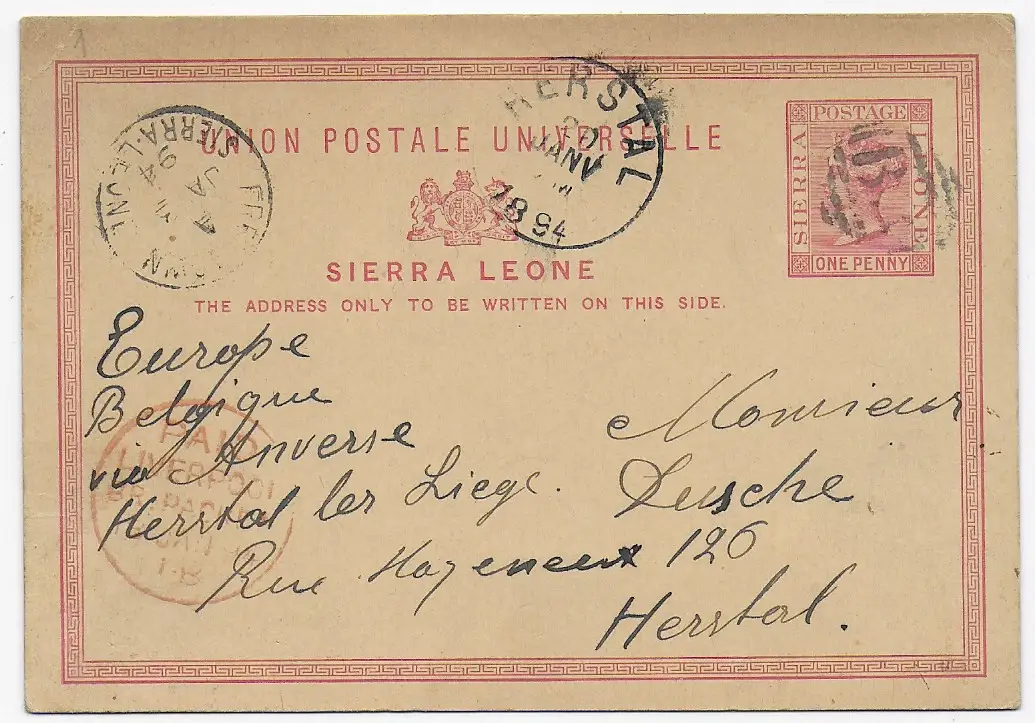 1
UNION POSTALE UNIVERSELLE
SIERRA LEONE
THE ADDRESS ONLY TO BE WRITTEN ON THIS SIDE.
POSTAGE
SIERRA
LEONE
ONE PENNY
B
HERSTAL
20
JANV
M
1894
FREETOWN
SIERRA-LEONE
JA 4
94
PAID
LIVERPOOL
BR. PACKET
JAN
Europe
Belgique
via Anverse
Herstal les Liege.
Monsieur
Dusche
Rue Hayeneux 126
Herstal.